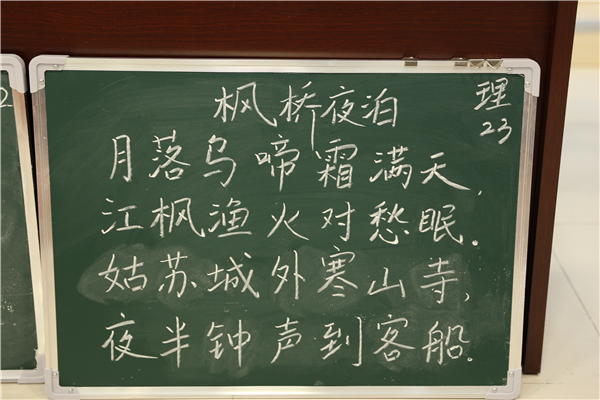 枫桥夜泊
理
23
月落乌啼霜满天,
江枫渔火对愁眠.
姑苏城外寒山寺,
夜半钟声到客船.
2